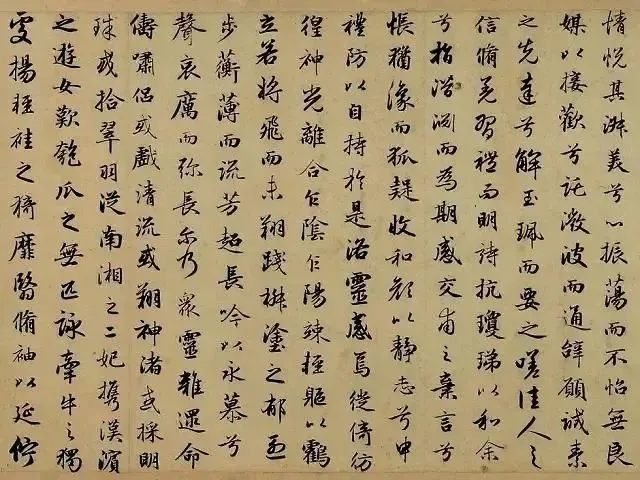 情悅其淑美兮心振蕩而不怡無良
媒以接歡兮託微波而通辭願誠素
之先達兮解玉珮而要之嗟佳人之
信脩羌習禮而明詩抗瓊珶以和余
兮指潛淵而為期感交甫之棄言兮
悵猶豫而狐疑收和顏以靜志兮申
禮防以自持於是洛靈感焉徙倚彷
徨神光離合乍陰乍陽竦輕軀以鶴
立若將飛而未翔踐椒塗之郁烈
步蘅薄而流芳超長吟以永慕兮
聲哀厲而彌長爾乃衆靈雜遝命
儔嘯侶或戲清流或翔神渚或採明
珠或拾翠羽從南湘之二妃攜漢濱
之遊女歎匏瓜之無匹詠牽牛之獨
處揚輕袿之猗靡翳脩袖以延佇